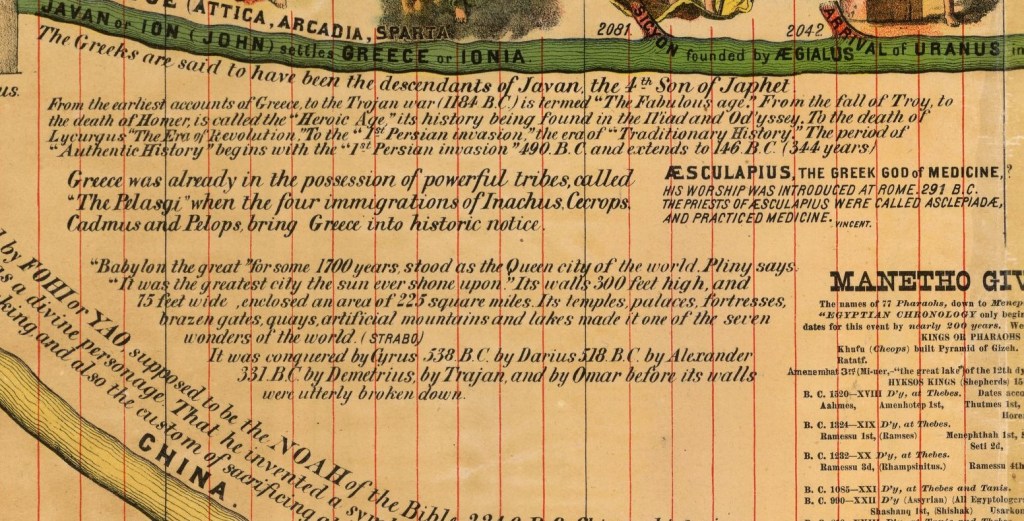 (ATTICA, ARCADIA, SPARTA
JAVAN or ION (JOHN) settles GREECE or IONIA
2081
SICYON founded by ÆGIALUS
2042
ARRIVAL of URANUS in
The Greeks are said to have been the descendants of Javan, the 4th Son of Japhet.
us.
From the earliest accounts of Greece, to the Trojan war (1184 B.C.) is termed "The Fabulous age." From the fall of Troy, to
the death of Homer, is called the "Heroic Age," its history being found in the Iliad and Odyssey. To the death of
Lycurgus "The Era of Revolution." To the "1st Persian invasion," the era of "Traditionary History." The period of
"Authentic History" begins with the "1st Persian invasion" 490. B.C. and extends to 146 B.C. (344 years)
Greece was already in the possession of powerful tribes, called
"The Pelasgi" when the four immigrations of Inachus, Cecrops,
Cadmus and Pelops, bring Greece into historic notice.
ÆSCULAPIUS, THE GREEK GOD of MEDICINE,?
HIS WORSHIP WAS INTRODUCED AT ROME. 291 B.C.
THE PRIESTS OF ÆSCULAPIUS WERE CALLED ASCLEPIADÆ,
AND PRACTICED MEDICINE. VINCENT.
"Babylon the great" for some 1700 years, stood as the Queen city of the world. Pliny says,
"It was the greatest city the sun ever shone upon." Its walls 300 feet high, and
75 feet wide, enclosed an area of 225 square miles. Its temples, palaces, fortresses,
brazen gates, quays, artificial mountains and lakes made it one of the seven
wonders of the world. (STRABO)
It was conquered by Cyrus 538. B.C. by Darius 518. B.C. by Alexander
331. B.C. by Demetrius, by Trajan, and by Omar before its walls
were utterly broken down.
by FOHI or YAO, supposed to be the NOAH of the Bible
as a divine personage. That he invented a
being and also the custom of sacrificing
CHINA.
MANETHO GIV
The names of 77 Pharaohs, down to Menep
"EGYPTIAN CHRONOLOGY only begin
dates for this event by nearly 200 years. We
KINGS OR PHARAOHS
Khufu (Cheops) built Pyramid of Gizeh.
Ratatf.
Amenembat 3rd (Mi-uer,-"the great lake" of the 12th dy
HYKSOS KINGS (Shepherds) 15
B. C. 1520—XVIII D'y, at Thebes. Dates acco
Aahmes, Amenhotep 1st, Thutmes 1st,
Hore
B. C. 1324—XIX D'y, at Thebes.
Ramessu 1st, (Ramses) Menephthah 1st,
Seti 2d,
B. C. 1232—XX D'y, at Thebes.
Ramessu 3d, (Rhampsinitus.) Ramessu 4th
B. C. 1085—XXI D'y, at Thebes and Tanis.
B. C. 990—XXII D'y (Assyrian) (All Egyptologer
Shashanq 1st, (Shishak) Usarkon